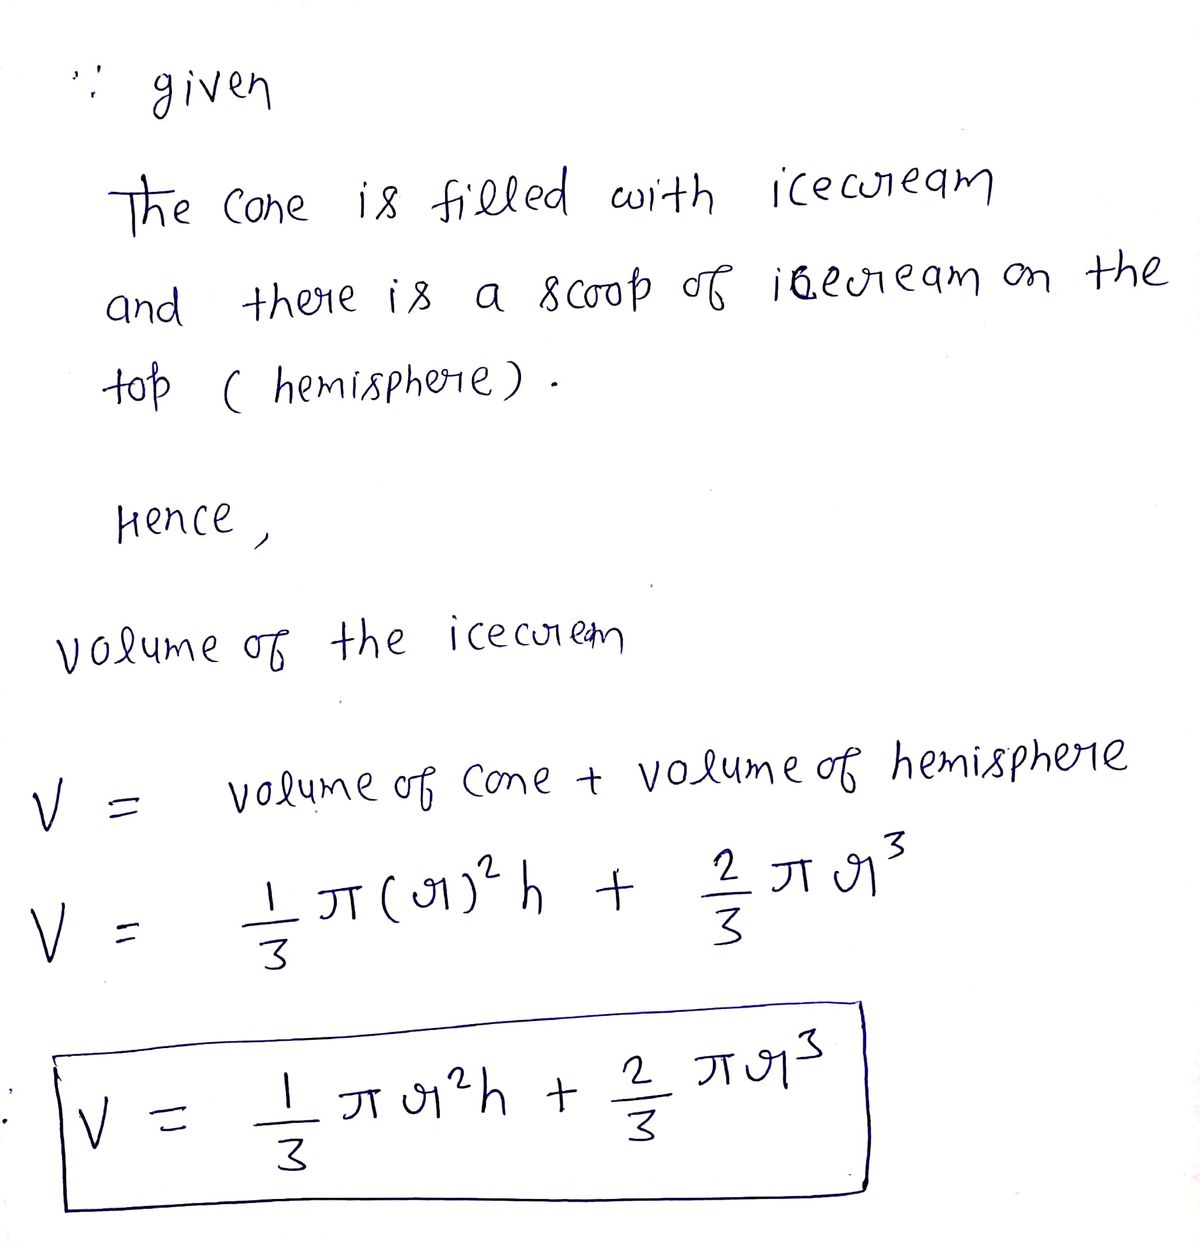 ∵ given
The cone is filled with icecream
and there is a scoop of icecream on the
top ( hemisphere ) .
Hence ,
volume of the icecrem
V = volume of cone + volume of hemisphere
V = 1/3 π (r)² h + 2/3 π r³
∴ V = 1/3 π r² h + 2/3 π r³